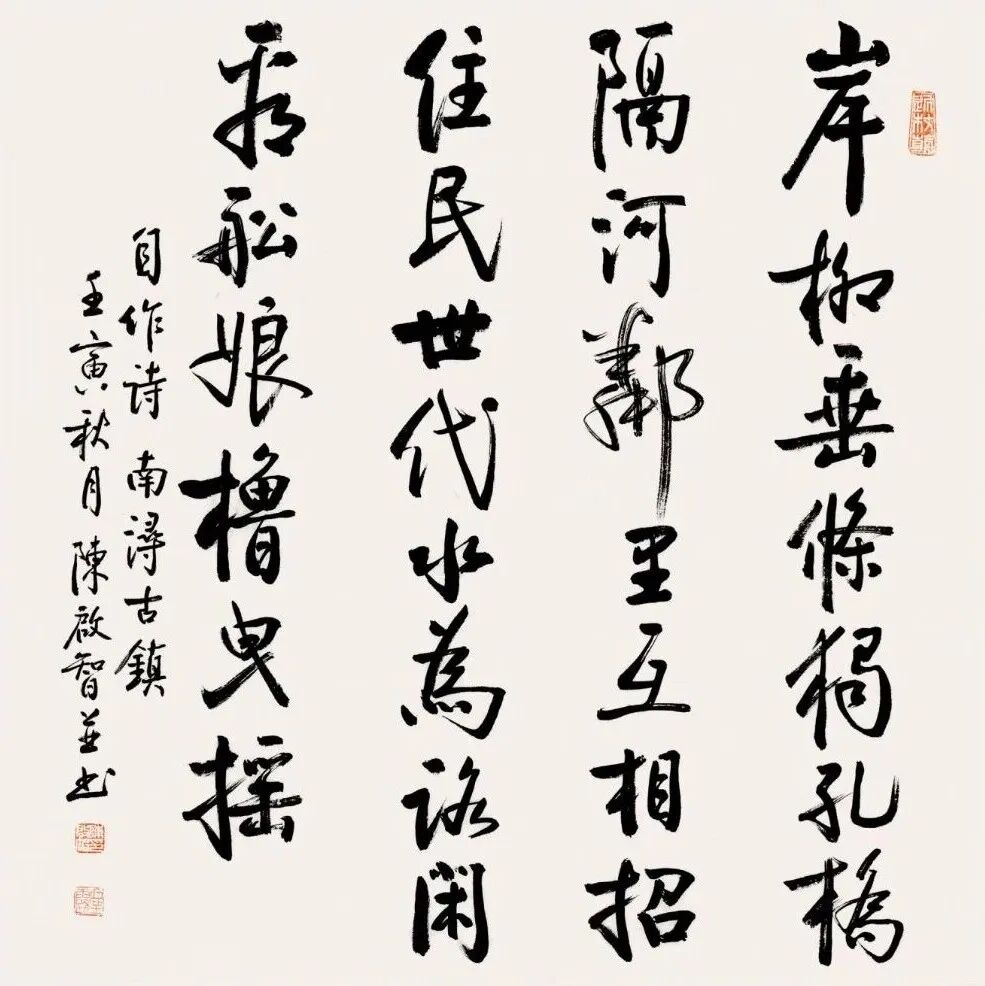 岸柳垂條獨孔橋
隔河鄰里互相招
住民世代水為路閑
看舩娘櫓曳摇
自作詩 南潯古鎮
壬寅秋月陳啟智並書